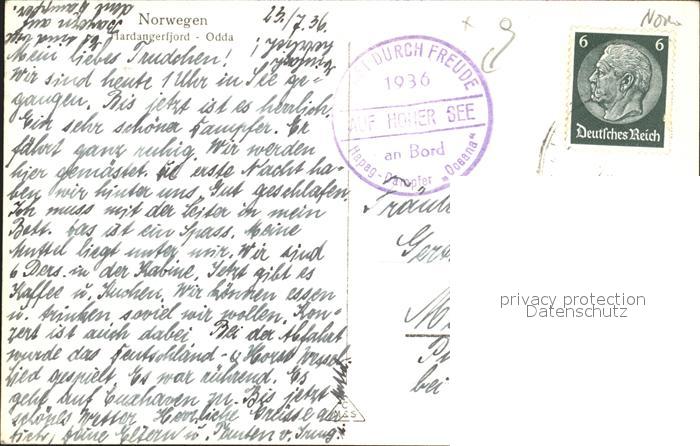 Norwegen
Hardangerfjord - Odda
23./7.36.
Mein liebes Trudchen!
Wir sind heute 1 Uhr in See ge-
gangen. Bis jetzt ist es herrlich.
Ein sehr schöner Dampfer. Er
fährt ganz ruhig. Wir werden
hier gemästet. Die erste Nacht ha-
ben wir hinter uns. Gut geschlafen.
Ich muss mit der Leiter in mein
Bett. Das ist ein Spass. Meine
Muttel liegt unter mir. Wir sind
6 Pers. in der Kabine. Jetzt gibt es
Kaffee u. Kuchen. Wir können essen
u. trinken soviel wir wollen. Kon-
zert ist auch dabei. Bei der Abfahrt
wurde das Deutschland- u Horst Wessel
lied gespielt. Es war rührend. Es
geht auf Cuxhaven zu. Bis jetzt
schönes Wetter. Herzliche Grüsse
Deine Eltern u.
DURCH FREUDE
1936
AUF HOHER SEE
an Bord
Hapag-Dampfer "Oceana"
6 6
Deutsches Reich
Fräul
bei
privacy protection
Datenschutz